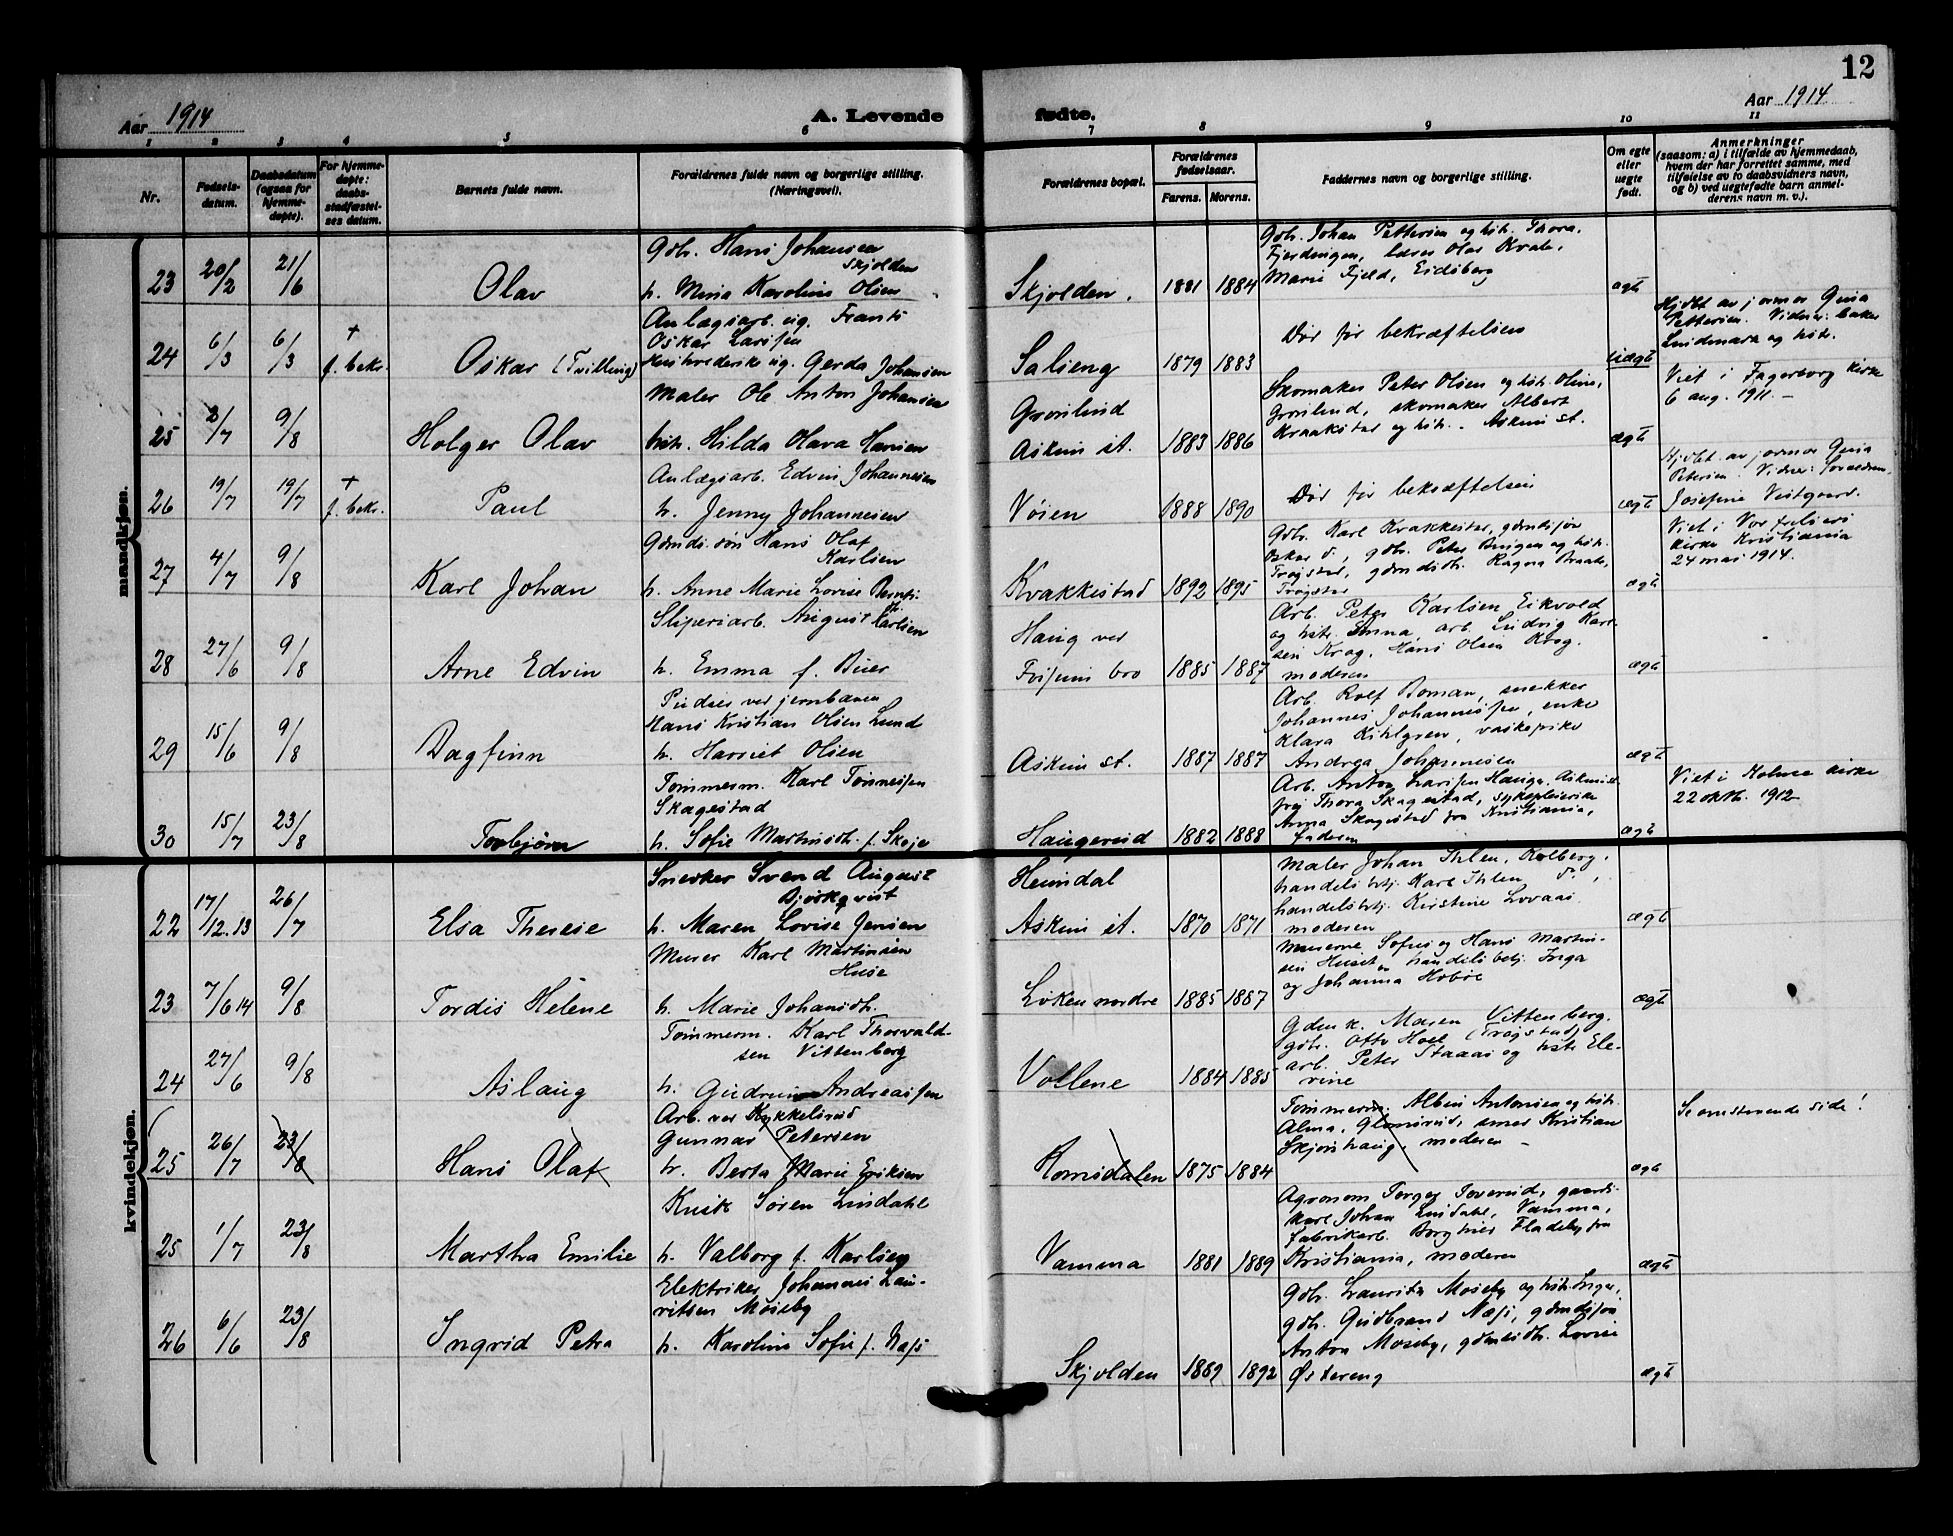 12
Aar 1914
A. Levende
fødte.
Aar 1914
1 2 3 4 5 6 7 8 9 10 11
Nr.
Fødsels-
datum.
Daabsdatum
(ogsaa for
hjemme-
døpte).
For hjemme-
døpte:
daabs-
stadfæstel-
ses datum.
Barnets fulde navn.
Forældrenes fulde navn og borgerlige stilling.
(Næringsvei).
Forældrenes bopæl.
Forældrenes
fødselsaar.
Farens. Morens.
Faddernes navn og borgerlige stilling.
Om egte
eller
uegte
født.
Anmerkninger
(saasom: a) i tilfælde av hjemmedaab,
hvem der har forrettet samme, med
tilføielse av to daabsvidners navn,
og b) ved uegtefødte barn anmel-
derens navn m. v.).
mandkjøn.
23 20/2 21/6 Olav
Gbr. Hans Johansen
Skjolden
h. Mina Karoline Olsen
Skjolden. 1881 1884
Gbr. Johan Pettersen og hstr. Thora,
Fjerdingen, lærer Olaf
Marie Fjeld, Eidsberg
ægt
24 6/3 6/3 + f. bekr. Oskar (Tvilling)
Anlægsarb. ug. Frants
Oskar Larssen
ug. Gerda Johansen
Salieng 1879 1883
Dør før bekræftelsen
uægt
Hjdbt av jormor Gina
Pettersen. Vidner: baker
Lindemara og hstr.
25 2/7 9/8 Holger Olav
Maler Ole Anton Johansen
hstr. Hilda Olava Hansen
Grønlund
Askim st. 1883 1886
Skomaker Peter Olsen og hstr. Oline,
Grønlund, skomaker Albert
Kraakstad og hstr. Askim st.
ægt
Viet i Fagerborg kirke
6 aug. 1911. –
26 19/7 19/7 + f. bekr. Paul
Anlægsarb. Edvin Johannesen
h. Jenny Johannesen
Vøien 1888 1890
Dør før bekræftelsen
ægt
Hjdbt. av jormor Gina
Petersen. Vidner: forældrene,
Josefine Vestgaard.
27 4/7 9/8 Karl Johan
Gdmds. søn Hans Olaf
Karlsen
h. Anne Marie Lovise
Kvakkestad 1892 1895
Gbr. Karl Kvakkestad, gdmdssøn
Oskar do, gbr. Peter Bingen og hstr.
Trøgstad, gdmdsdtr. Ragna Braate,
Trøgstad
ægt
Viet i Vor frelsers
kirke Kristiania
24 mai 1914.
28 27/6 9/8 Arne Edvin
Sliperiarb. August Karlsen
h. Emma f. Buer
Haug ved
Fossum bro 1885 1887
Arb. Peter Karlsen Eikvold
og hstr. Emma, arb. Ludvig Karl-
sen Krog, Hans Olsen Krog.
moderen
ægt
29 15/6 9/8 Dagfinn
Pudser ved jernbanen
Hans Kristian Olsen Lund
h. Harriet Olsen
Askim st. 1887 1887
Arb. Rolf Boman, snekker
Johannes Johannessen, enke
Klara Kihlgren, vaskepike
Andrea Johannesen
ægt
30 15/7 23/8 Torbjørn
Tømmerm. Karl Tønnessen
Skagestad
h. Sofie Martinsdtr. f. Skøje
Haugerud 1882 1888
Arb. Anton Larssen Hauga, Askim st.
frøj Thora Skagestad, sykepleierske
Anna Skagestad fra Kristiania,
faderen
ægt
Viet i Holme kirke
22 oktb. 1912
kvindekjøn.
22 17/12.13 26/7 Elsa Therese
Snekker Svend August
Bjørkqvist
h. Maren Lovise Jensen
Heimdal
Askim st. 1870 1871
Maler Johan Ihlen, Kolberg,
handelsbetj. Karl Ihlen do,
handelsbetj. Kirstine Lovaas
moderen
ægt
23 7/6 14 9/8 Tordis Helene
Murer Karl Martinsen
Huse
h. Marie Johansdtr.
Løken nordre 1885 1887
Murerne Sofus og Hans Martin-
sen Huset handelsbetj. Inga
og Johanna Hobøl
ægt
24 27/6 9/8 Aslaug
Tømmerm. Karl Thorvald-
sen Vittenberg
h. Gudrun Andreassen
Vollene 1884 1885
Gdenk. Maren Vittenberg.
gbr. Otto Hoel (Trøgstad)
arb. Peter Staaas og hstr. Ele-
rine
ægt
25 26/7 23/8 Hans Olaf
Arb. ved Kykkelsrud
Gunnar Petersen
h. Berta Marie Eriksen
Romsdalen 1875 1884
Tømmerm. Albin Antonsen og hstr.
Alma, Glomsrud, Kristian
Skjørshaug, moderen –
ægt
Se omstaaende side!
25 1/7 23/8 Martha Emilie
Kusk Søren Lindahl
h. Valborg f. Karlsen
Vamma 1881 1889
Agronom Torger Toverud, gaards-
karl Johan Lindahl, Vamma,
fabrikarb. Borghild Fladeby fra
Kristiania, moderen
ægt
26 6/6 23/8 Ingrid Petra
Elektriker Johannes Lau-
ritsen Moseby
h. Karoline Sofie f. Næss
Skjolden 1889 1892
Gbr. Lauritz Moseby og hstr. Inger,
gbr. Gudbrand Næss, gdmdssøn
Anton Moseby, gdmdsdtr. Lovise
Østereng
ægt